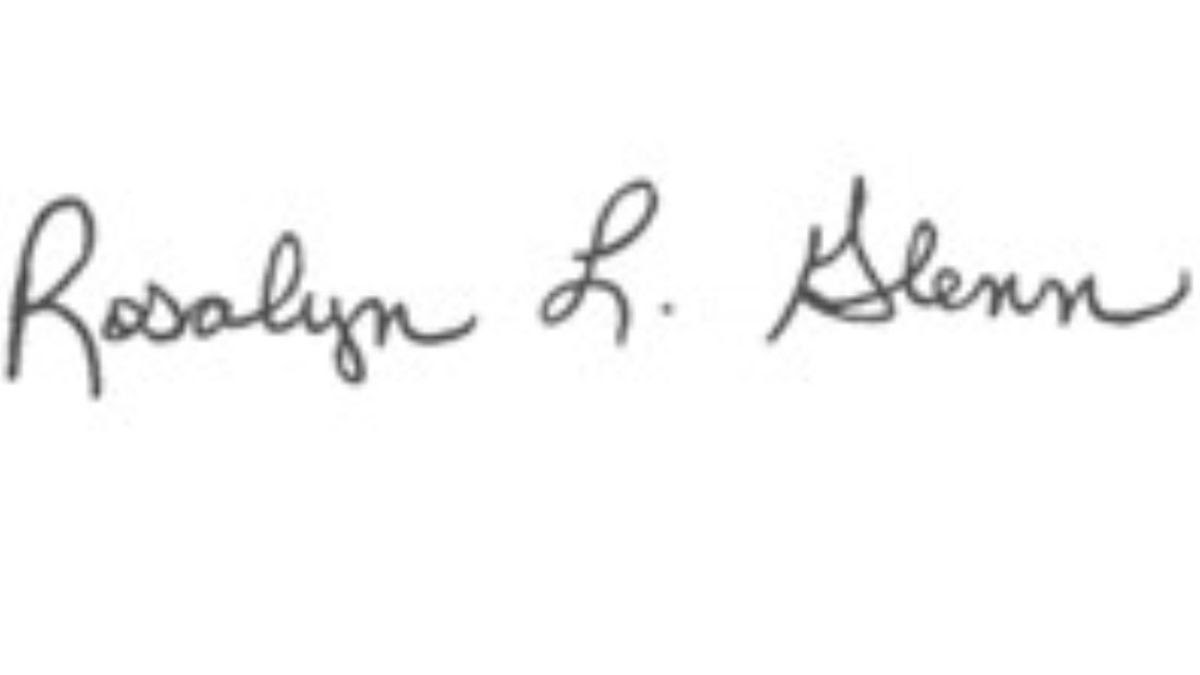 Rosalyn L. Glenn